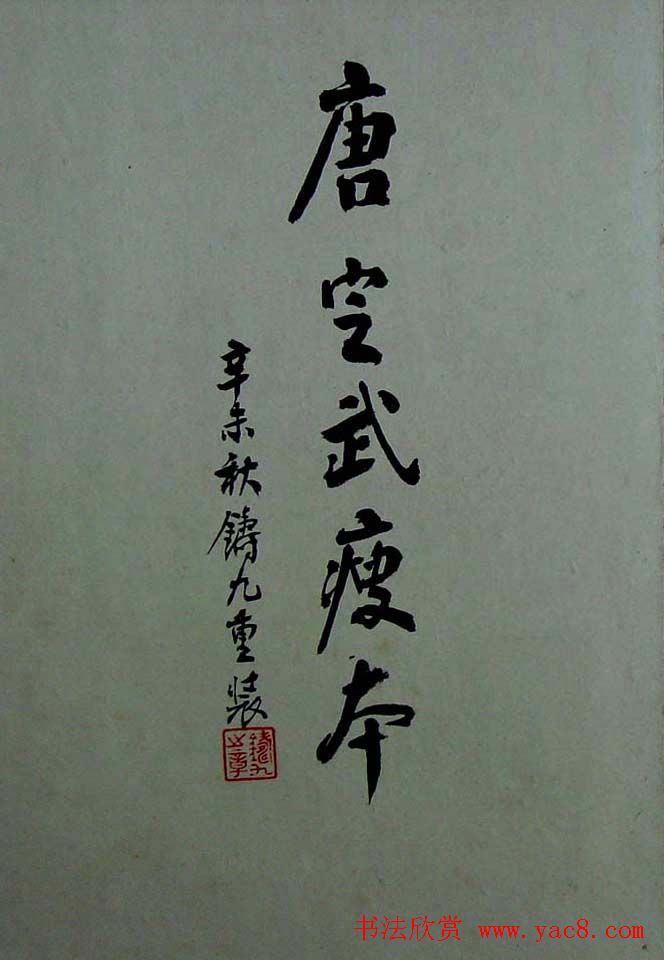 唐定武瘦本
辛未秋鑄九重裝
鑄九之章
书法欣赏 www.yac8.com